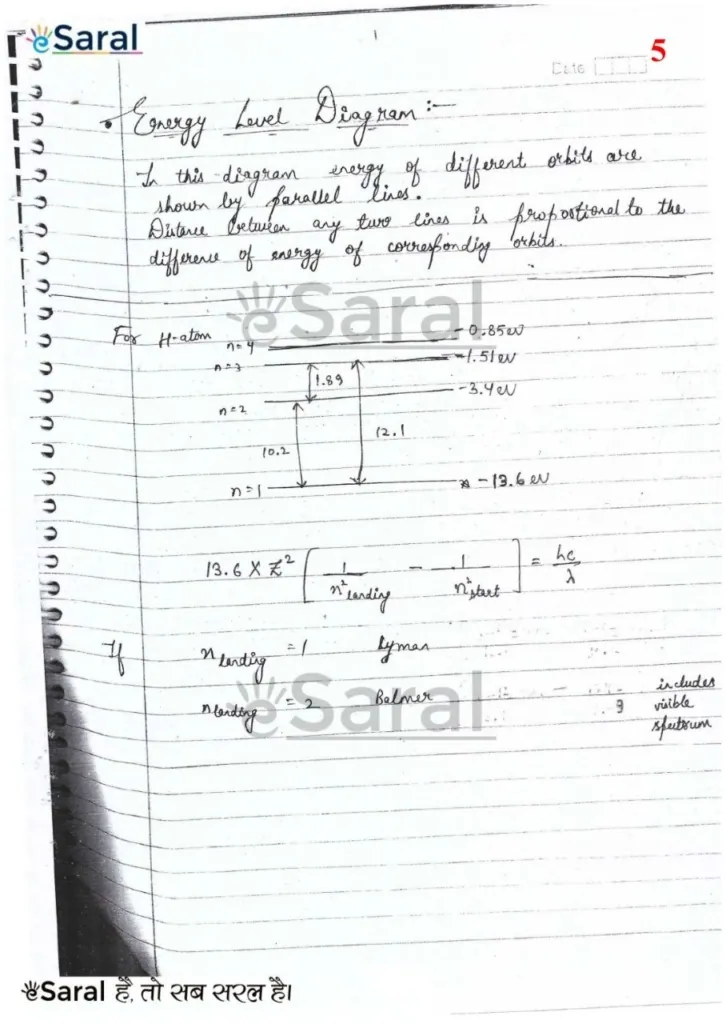 eSaral
1
5
Date
• Energy Level Diagram :—
In this diagram energy of different orbits are
shown by parallel lines.
Distance between any two lines is proportional to the
difference of energy of corresponding orbits.
eSaral
For H-atom n=4 -0.85ev
n=3 -1.51ev
1.89
n=2 -3.4ev
10.2 12.1
n=1 -13.6 ev
13.6 X Z² [ 1/n²landing - 1/n²start ] = hc/λ
If n landing = 1 Lyman
n landing = 2 Balmer } includes
visible
spectrum
eSaral
eSaral है, तो सब सरल है।